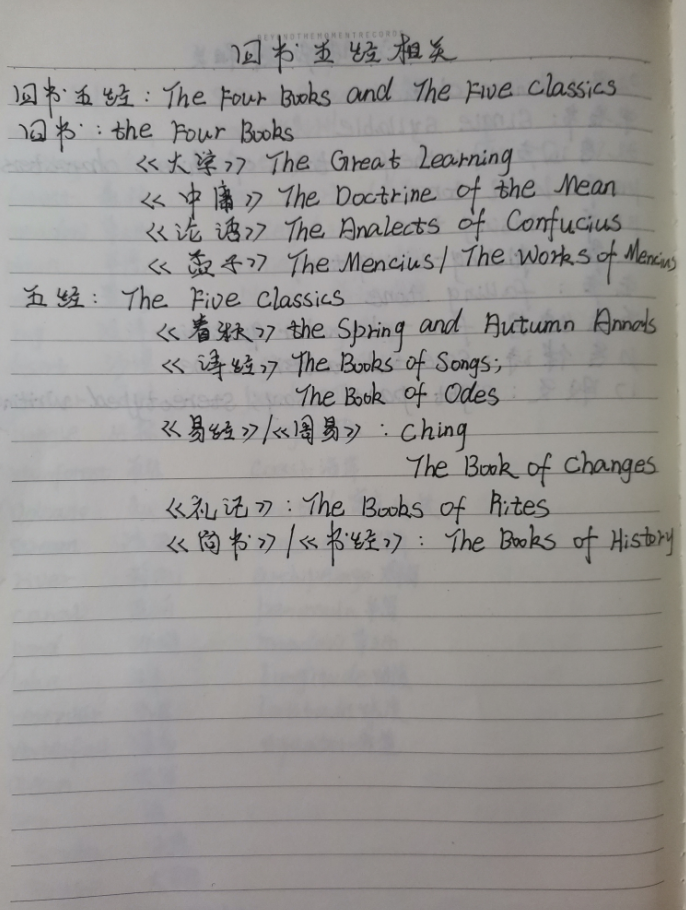 BEYONDTHEMOMENTRECORDS
四书五经相关
四书五经: The Four Books and The Five Classics
四书: the Four Books
《大学》 The Great Learning
《中庸》 The Doctrine of the Mean
《论语》 The Analects of Confucius
《孟子》 The Mencius/ The Works of Mencius
五经: The Five Classics
《春秋》 the Spring and Autumn Annals
《诗经》 The Books of Songs;
The Book of Odes
《易经》/《周易》: Ching
The Book of Changes
《礼记》: The Books of Rites
《尚书》/《书经》: The Books of History